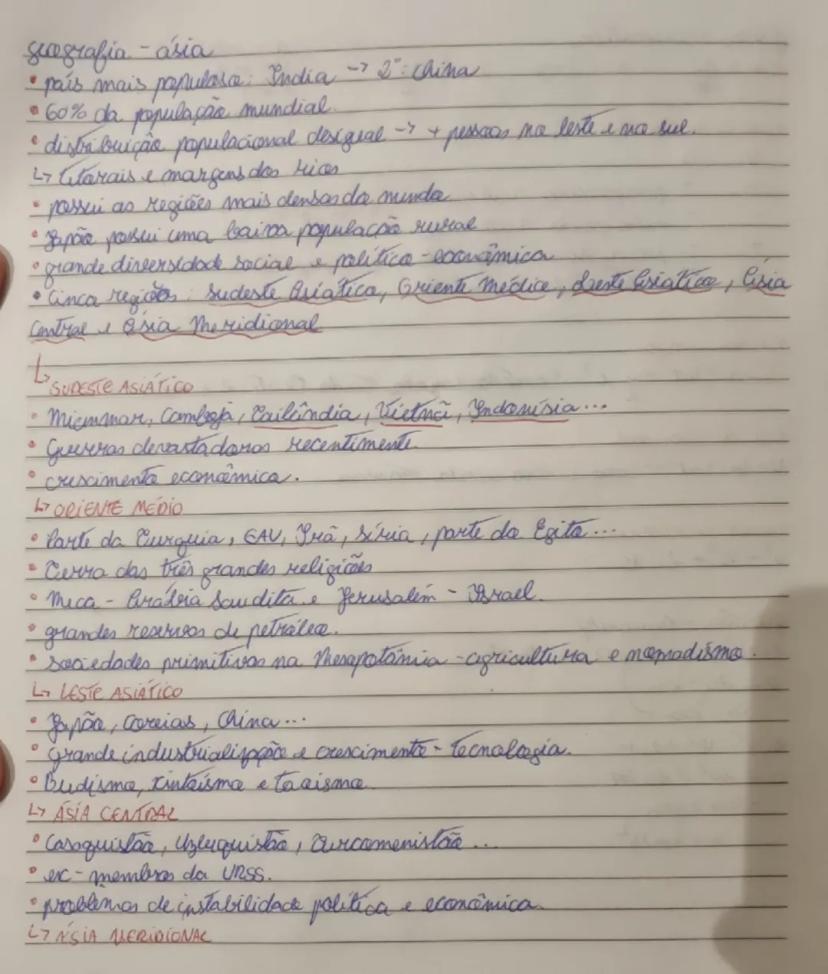 geografia - ásia
• país mais populoso: Índia → 2º: China
• 60% da população mundial
• distribuição populacional desigual → + pessoas no leste e no sul.
↳ litorais e margens dos rios
• possui as regiões mais densas do mundo
• Japão possui uma baixa população rural
• grande diversidade social e político-econômica
• Cinco regiões: Sudeste Asiático, Oriente Médio, Leste Asiático, Ásia
Central e Ásia Meridional
↳ SUDESTE ASIÁTICO
• Mianmar, Camboja, Tailândia, Vietnã, Indonésia...
• Guerras devastadoras recentemente.
• crescimento econômico.
↳ ORIENTE MÉDIO
• Parte da Turquia, EAU, Irã, Síria, parte do Egito...
• Terra das três grandes religiões
• Meca - Arábia Saudita e Jerusalém - Israel.
• grandes reservas de petróleo.
• sociedades primitivas na Mesopotâmia - agricultura e nomadismo.
↳ LESTE ASIÁTICO
• Japão, Coreias, China...
• Grande industrialização e crescimento - tecnologia.
• Budismo, xintoísmo e taoismo
↳ ÁSIA CENTRAL
• Casaquistão, Uzbequistão, Turcomenistão...
• ex-membros da URSS.
• problemas de instabilidade política e econômica.
↳ ÁSIA MERIDIONAL